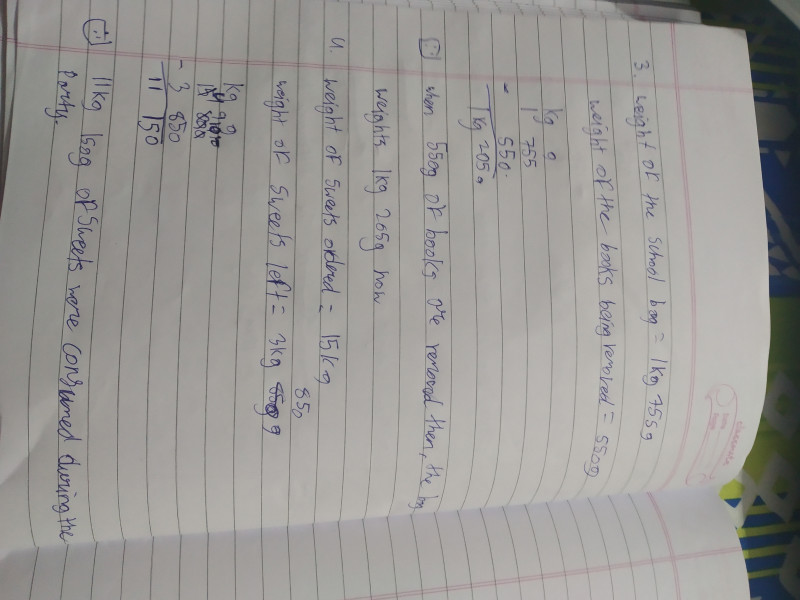 3. weight of the school bag = 1kg 755g
weight of the books being removed = 550g
kg g
1 755
- 550.
1kg 205g
∴ when 550g of books are removed then, the bag
weights 1kg 205g now
4. weight of sweets ordered = 15kg
850
weight of sweets left = 3kg g
kg g
- 3 850
11 150
∴ 11kg 150g of sweets were consumed during the
Party.